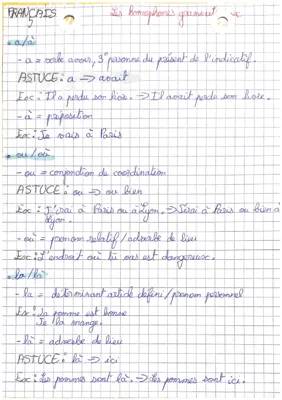 FRANÇAIS
5
Les homophones grammat
• a/à
- a = verbe avoir, 3e personne du présent de l'indicatif.
ASTUCE : a => avait
Ex : Il a perdu son livre. => Il avait perdu son livre.
- à = préposition
Ex : Je vais à Paris
• ou/où
- ou = conjonction de coordination
ASTUCE : ou => ou bien
Ex : J'irai à Paris ou à Lyon. => J'irai à Paris ou bien à Lyon.
- où = pronom relatif / adverbe de lieu
Ex : L'endroit où tu vas est dangereux.
• la/là
- la = déterminant article défini / pronom personnel
Ex : La pomme est bonne
Je la mange.
- là = adverbe de lieu
ASTUCE : là => ici
Ex : Les pommes sont là. => Les pommes sont ici.